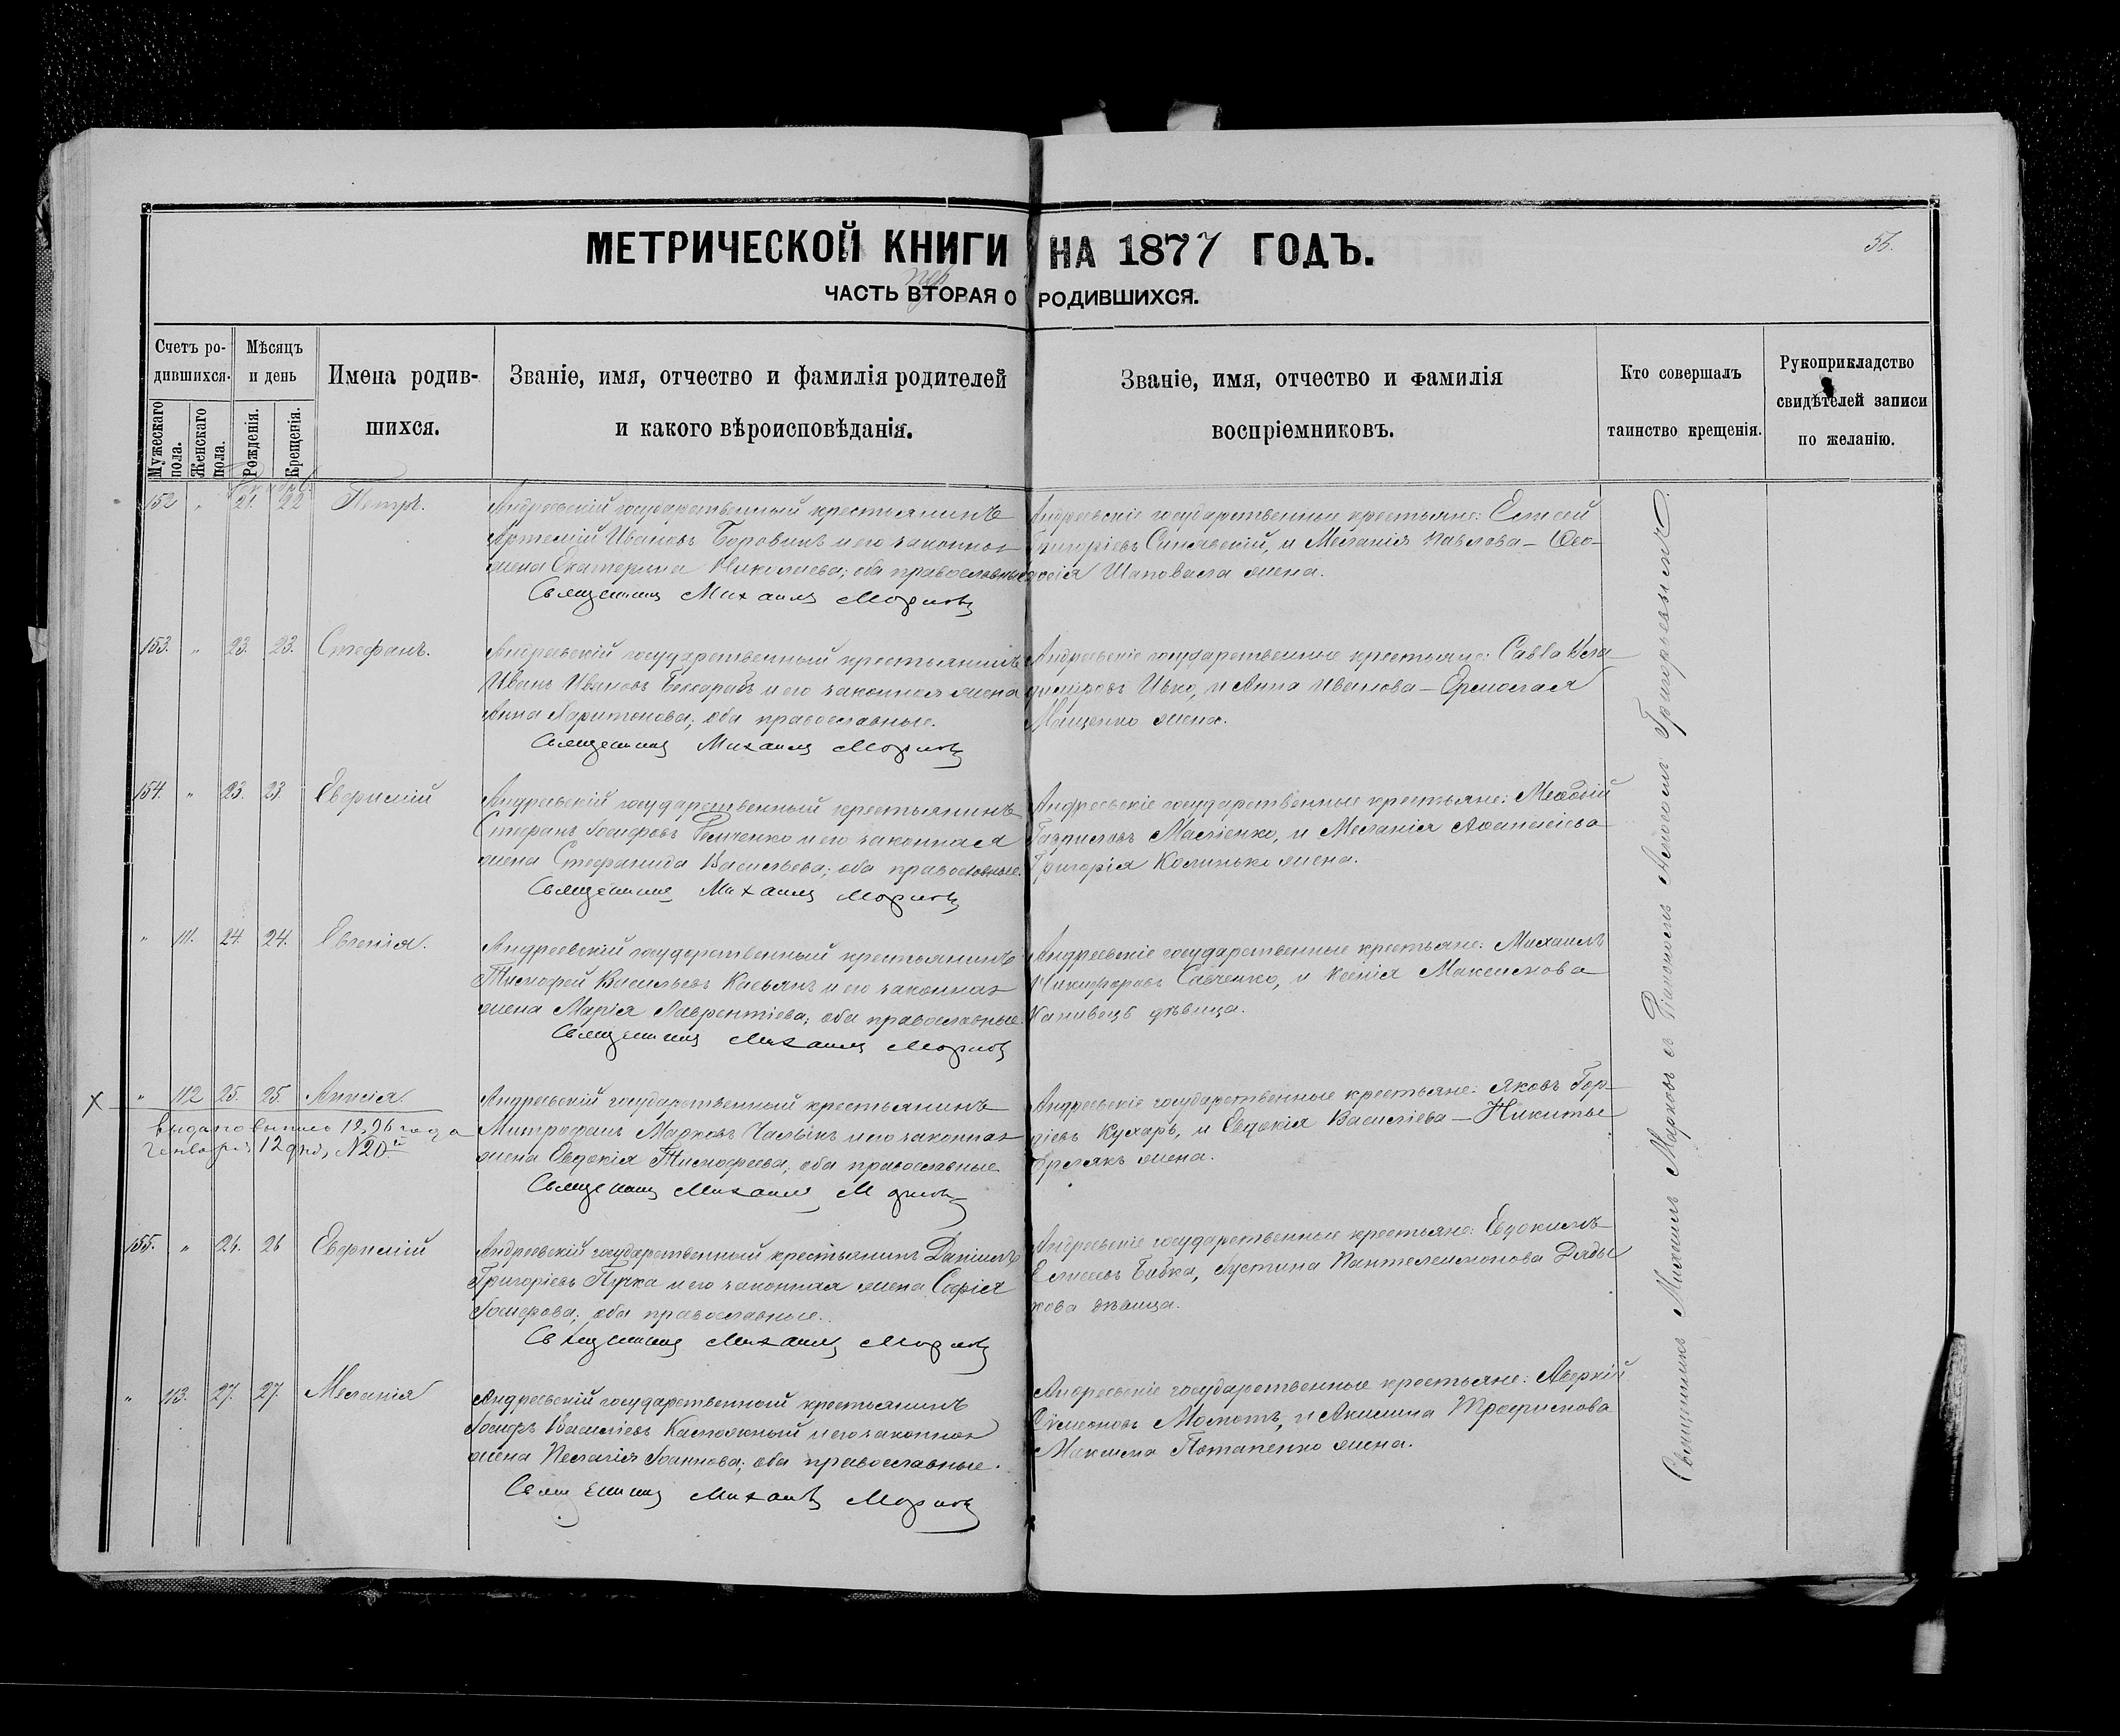 МЕТРИЧЕСКОЙ КНИГИ НА 1877 ГОДЪ.
56.
ЧАСТЬ ВТОРАЯ О РОДИВШИХСЯ.
пер
Счетъ ро-
дившихся.
Мужескаго пола.
Женскаго пола.
Мѣсяцъ
и день
Рожденія.
Крещенія.
Имена родив-
шихся.
Званіе, имя, отчество и фамилія родителей
и какого вѣроисповѣданія.
Званіе, имя, отчество и фамилія
воспріемниковъ.
Кто совершалъ
таинство крещенія.
Рукоприкладство
свидѣтелей записи
по желанію.
152 " 21. 22 Петръ.
Андреевскій государственный крестьянинъ
Артемій Ивановъ Боровикъ и его законная
жена Екатерина Николаева; оба православные
Священникъ Михаилъ Марковъ
Андреевскіе государственные крестьяне: Елисей
Григоріевъ Синявскій, и Меланія Павлова – Ѳео-
досія Шаповала жена.
153. " 23. 23. Стефанъ.
Андреевскій государственный крестьянинъ
Иванъ Ивановъ Бессарабъ и его законная жена
Анна Харитонова; оба православные.
Священникъ Михаилъ Марковъ
Андреевскіе государственные крестьяне: Савва Вла-
диміровъ Ивко, и Анна Иванова – Ермолая
Мащенко жена.
154. " 23. 23 Евфимій
Андреевскій государственный крестьянинъ
Стефанъ Іосифовъ и его законная
жена Стефанида Васильева; оба православные.
Священникъ Михаилъ Марковъ
Андреевскіе государственные крестьяне: Меѳодій
Гавриловъ Маслѣнко, и Меланія Аѳанасіева
Григорія Калинько жена.
" 111. 24. 24. Евгенія.
Андреевскій государственный крестьянинъ
Тимофей Васильевъ Касьянъ и его законная
жена Марія Лаврентіева; оба православные.
Священникъ Михаилъ Марковъ
Андреевскіе государственные крестьяне: Михаилъ
Никифоровъ Савченко, и Ксенія Максимова
Канивецъ дѣвица.
Х " 112 25. 25 Анисія
выдана выпись 1896 года
Января 12 дня, №20
Андреевскій государственный крестьянинъ
Митрофанъ Марковъ Чалыкъ и его законная
жена Евдокія Тимофеева; оба православные
Священникъ Михаилъ Марковъ
Андреевскіе государственные крестьяне: Яковъ Гор-
діевъ Кухарь, и Евдокія Василіева – Никиты
Ермакъ жена.
155. " 26. 26 Евфимій
Андреевскій государственный крестьянинъ Даніилъ
Григоріевъ Пучка и его законная жена Софія
Іосифова; оба православные.
Священникъ Михаилъ Марковъ
Андреевскіе государственные крестьяне: Евдокимъ
Елисеевъ Бабка, Іустина Пантелеимонова Дяды
кова дѣвица.
" 113. 27. 27. Меланія
Андреевскій государственный крестьянинъ
Іосифъ Василіевъ и его законная
жена Пелагія Іоаннова; оба православные.
Священникъ Михаилъ Марковъ
Андреевскіе государственные крестьяне: Аверкій
Симеоновъ Момотъ, и Акилина Трофимова
Максима Потапенко жена.
Священникъ Михаилъ Марковъ съ Діакономъ Григорьевымъ.